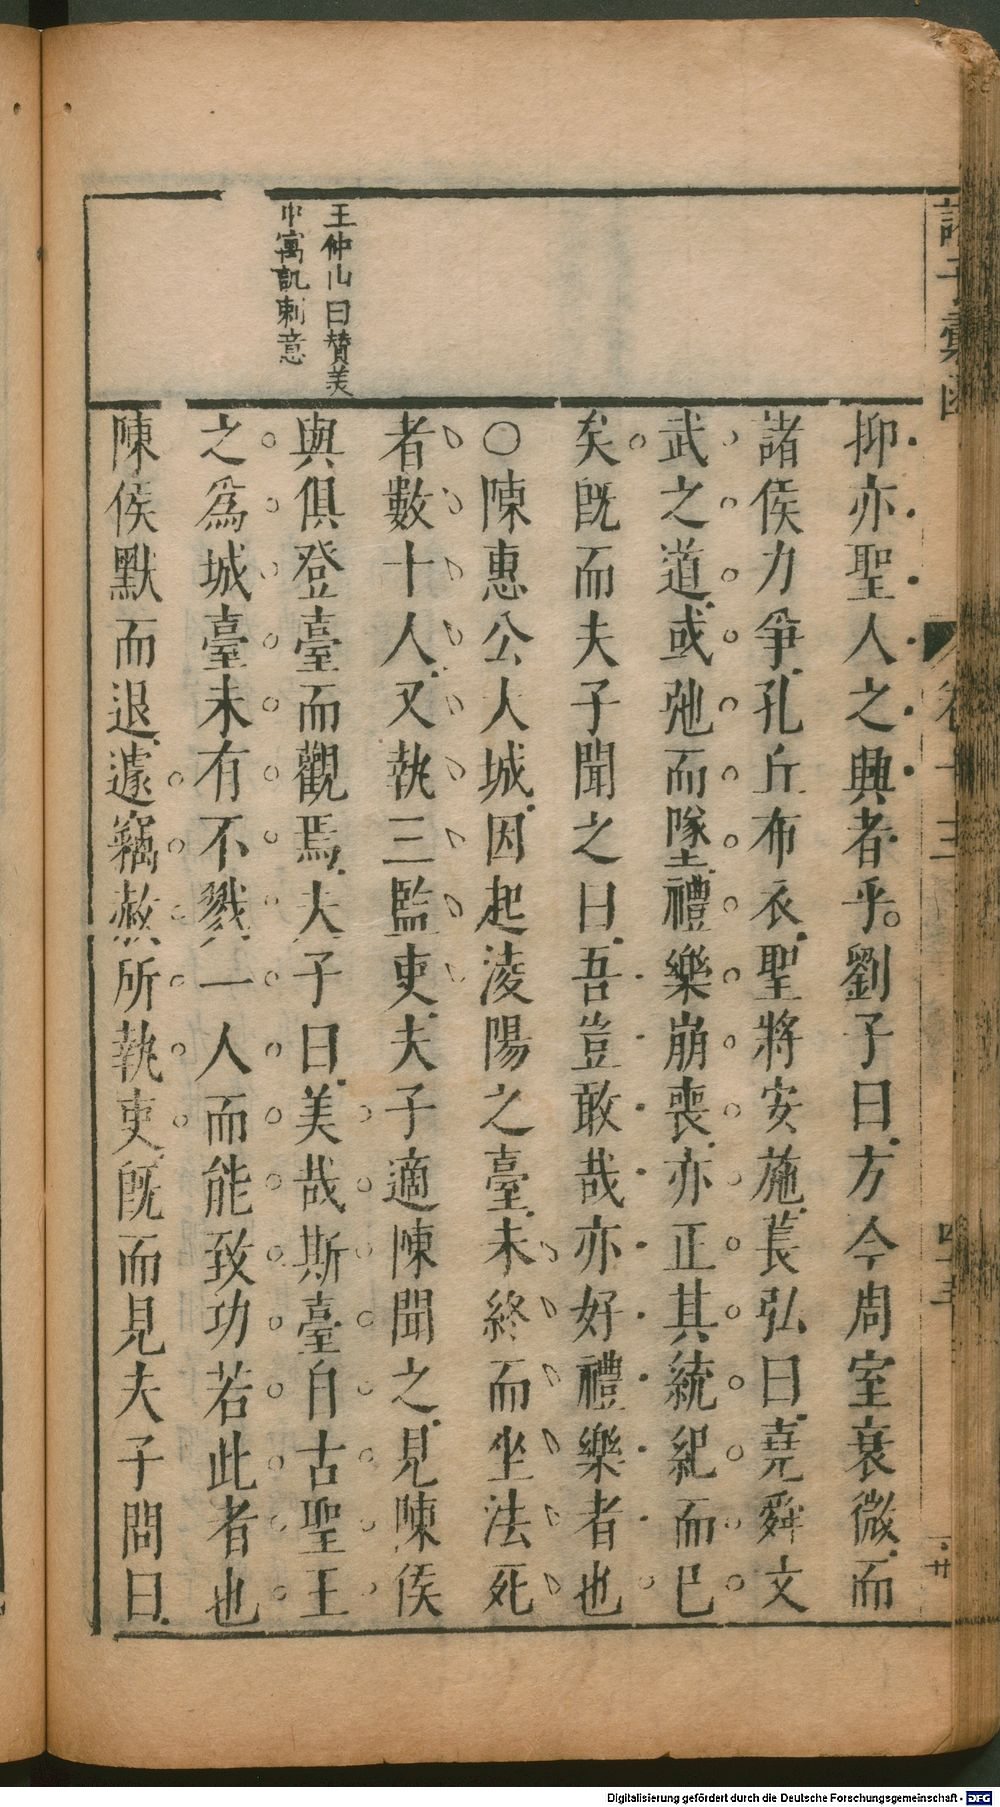 諸子彙函
卷十三
四十五
王仲山曰贊美
中寓譏刺意
抑亦聖人之興者乎劉子曰方今周室衰微而
諸侯力爭孔丘布衣聖將安施萇弘曰堯舜文
武之道或弛而墜禮樂崩喪亦正其統紀而已
矣旣而夫子聞之曰吾豈敢哉亦好禮樂者也
○陳惠公大城因起淩陽之臺未終而坐法死
者數十人又執三監吏夫子適陳聞之見陳侯
與俱登臺而觀焉夫子曰美哉斯臺自古聖王
之爲城臺未有不戮一人而能致功若此者也
陳侯默而退遽竊赦所執吏旣而見夫子問曰
Digitalisierung gefördert durch die Deutsche Forschungsgemeinschaft - DFG